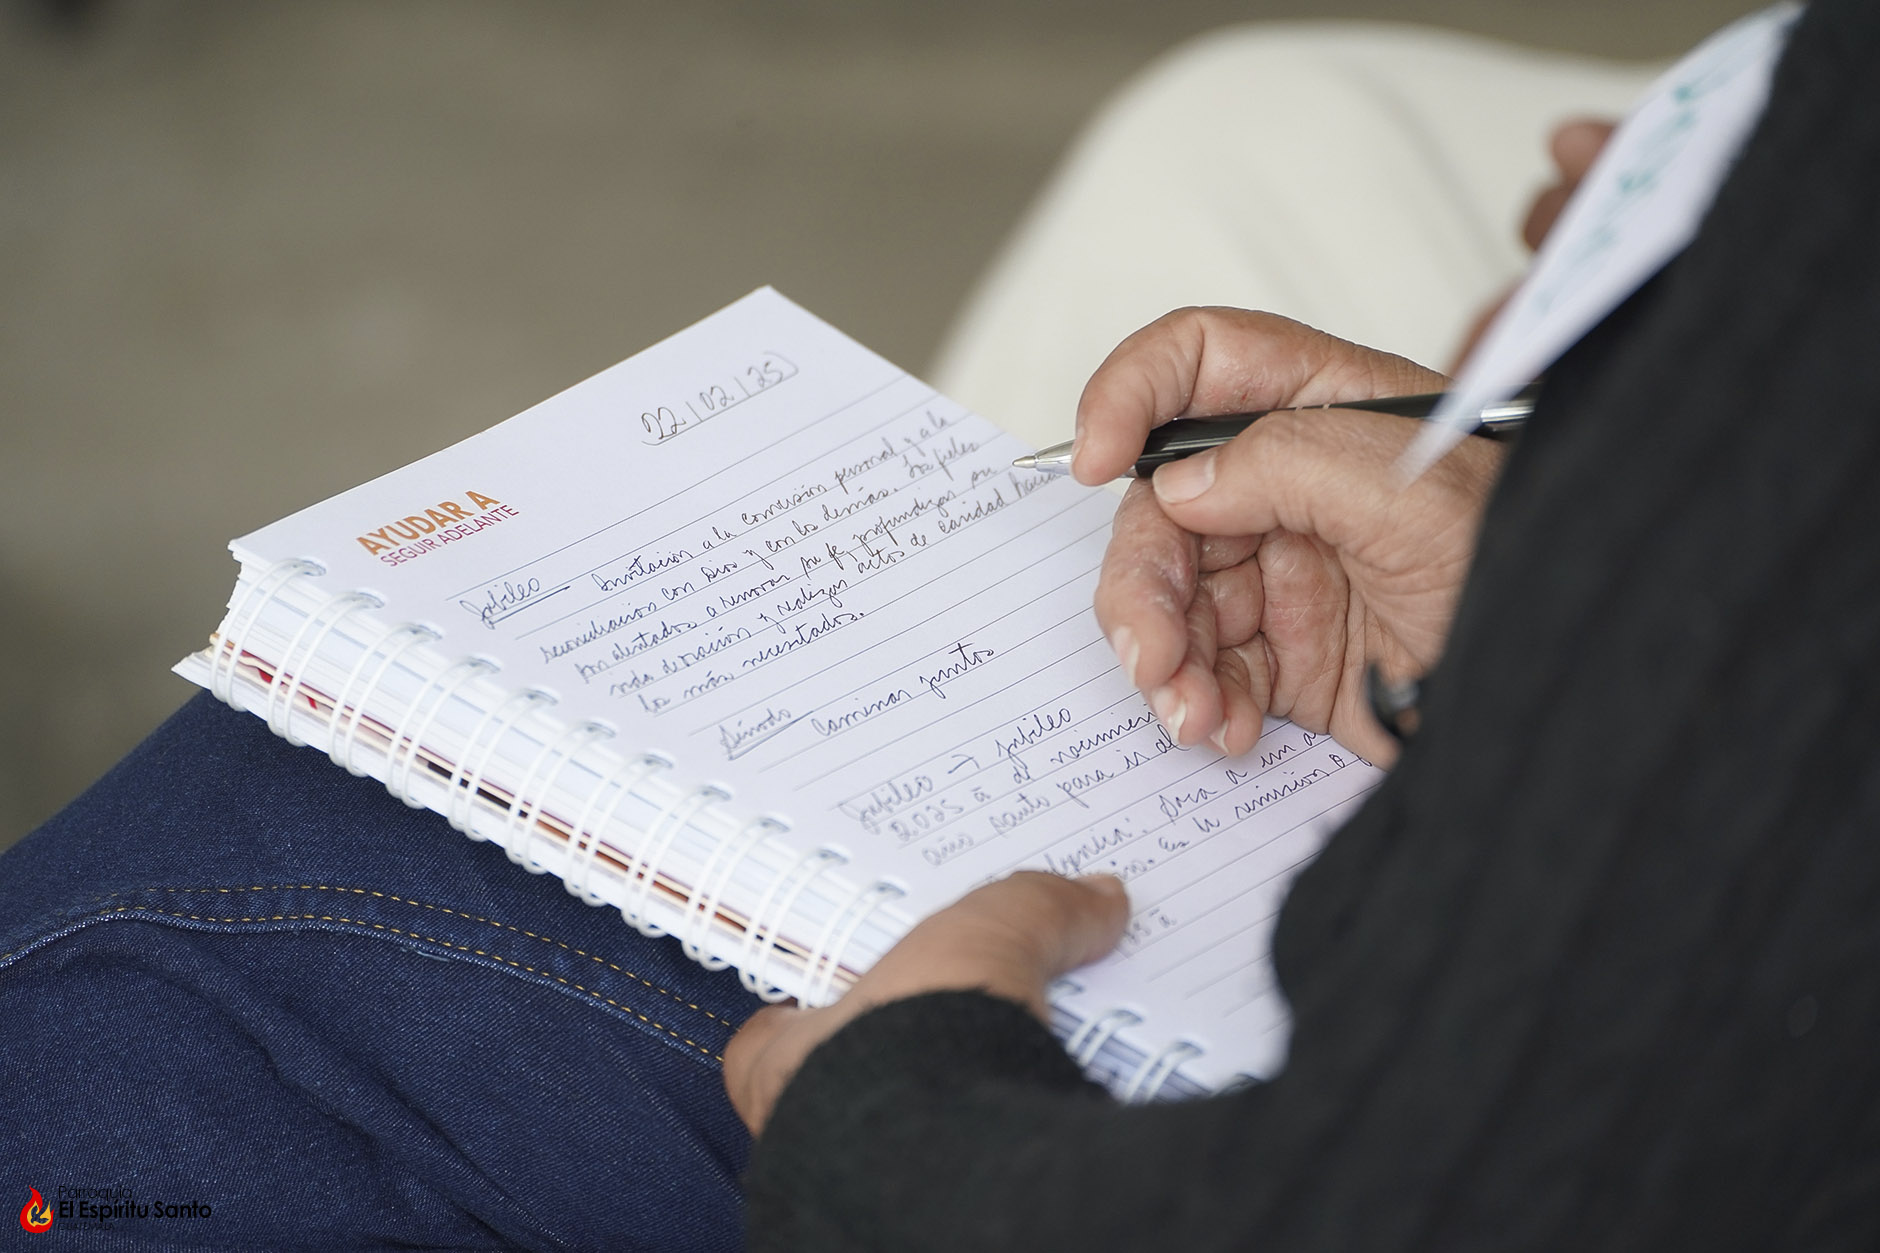 22/02/25
AYUDAR A
SEGUIR ADELANTE
Jubileo Invitación a la conversión personal y a la
reconciliación con Dios y con los demás. Los fieles
son alentados a renovar su fe, profundizar su
vida de oración y realizar actos de caridad hacia
los más necesitados.
Sínodo Caminar juntos
Jubileo → Jubileo
2025 a de nacimien
año santo para ir al
a un a
Es la remisión
Parroquia
El Espíritu Santo
GUATEMALA